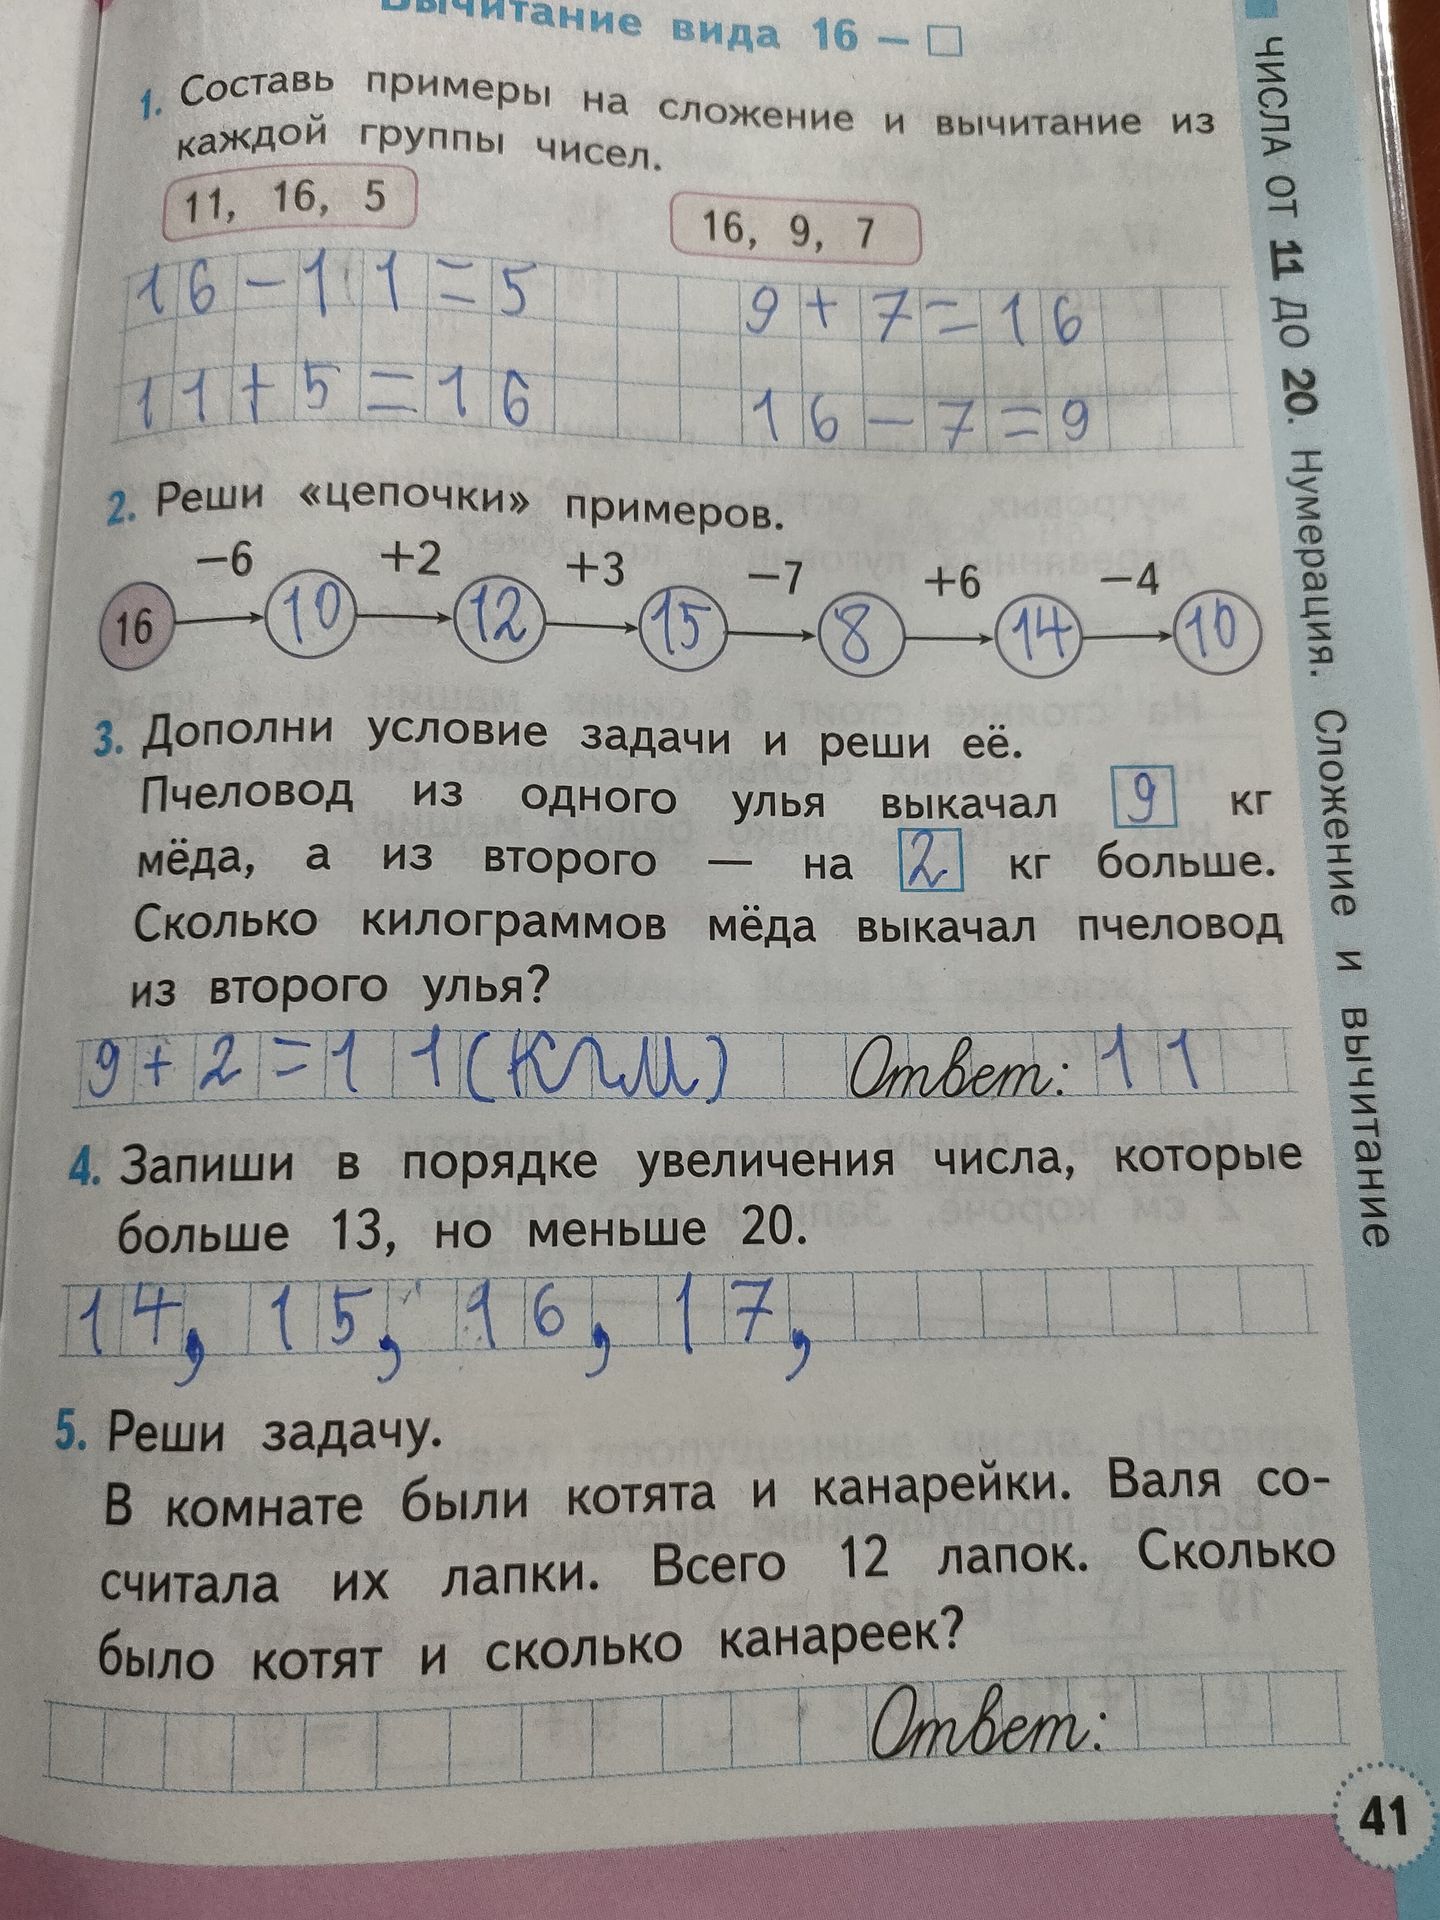 Вычитание вида 16 – □
1. Составь примеры на сложение и вычитание из
каждой группы чисел.
11, 16, 5
16, 9, 7
16-11=5
9+7=16
11+5=16
16-7=9
2. Реши «цепочки» примеров.
−6 +2 +3 −7 +6 −4
16 10 12 15 8 14 10
3. Дополни условие задачи и реши её.
Пчеловод из одного улья выкачал 9 кг
мёда, а из второго — на 2 кг больше.
Сколько килограммов мёда выкачал пчеловод
из второго улья?
9+2=11(кгм) Ответ: 11
4. Запиши в порядке увеличения числа, которые
больше 13, но меньше 20.
14, 15, 16, 17,
5. Реши задачу.
В комнате были котята и канарейки. Валя со-
считала их лапки. Всего 12 лапок. Сколько
было котят и сколько канареек?
Ответ:
41
ЧИСЛА ОТ 11 ДО 20. Нумерация. Сложение и вычитание